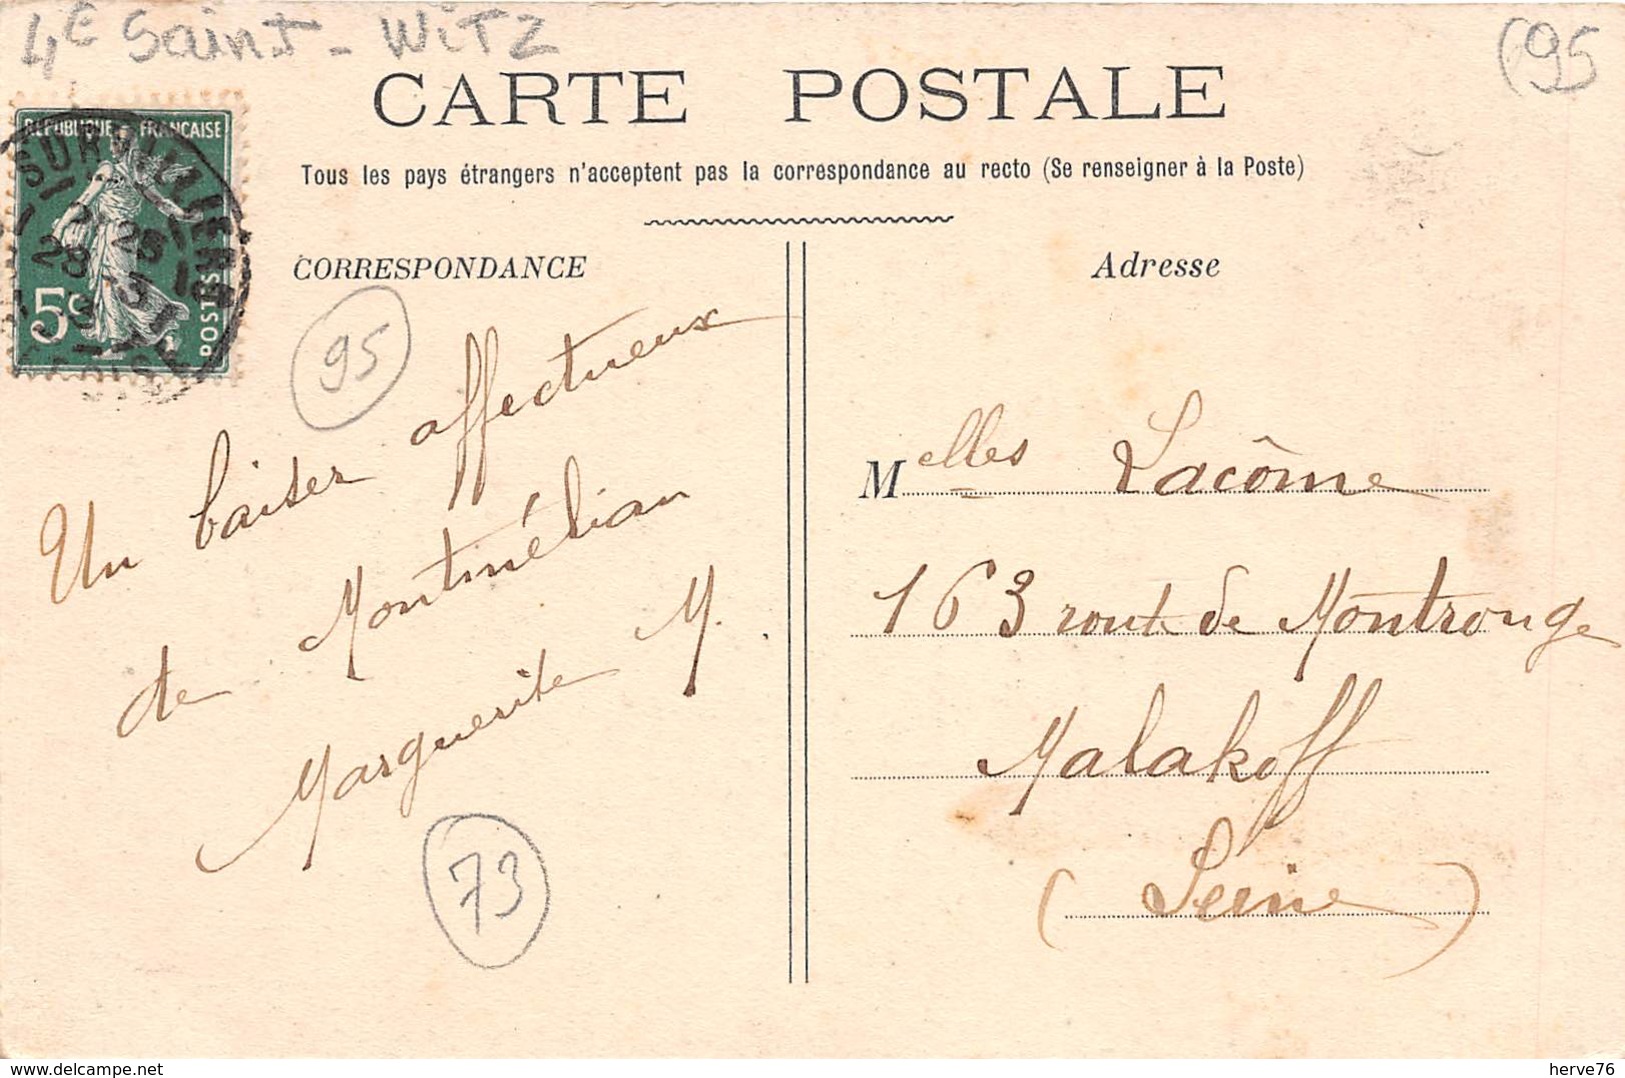 4E Saint-WITZ
(95
CARTE POSTALE
Tous les pays étrangers n'acceptent pas la correspondance au recto (Se renseigner à la Poste)
RÉPUBLIQUE FRANÇAISE
SURVILLIERS
28
5c
POSTES
CORRESPONDANCE
95
Un baiser affectueux
de Montmélian
Marguerite M.
73
Adresse
Melles Lacôme
163 route de Montrouge
Malakoff
(Seine)
herve76